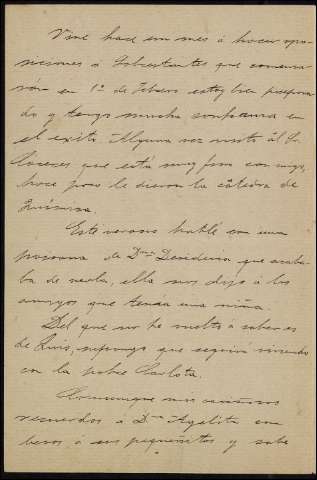 Vine hace un mes á hacer opo-
siciones á Sobrestantes que comenza-
rán en 1º de Febrero estoy bien prepara-
do y tengo mucha confianza en
el exito. Alguna vez visito al Sr.
Caceres que está muy fino conmigo,
hace poco le dieron la cátedra de
Química.
Este verano hablé con una
persona de Dña Desideria que acaba-
ba de verla, ella nos dijo á los
amigos que tenía una niña.
Del que no he vuelto á saber es
de Luis, supongo que seguirá viviendo
con la pobre Carlota.
Comunique mis cariñosos
recuerdos á Dña Agelita con
besos á sus pequeñitos y sabe